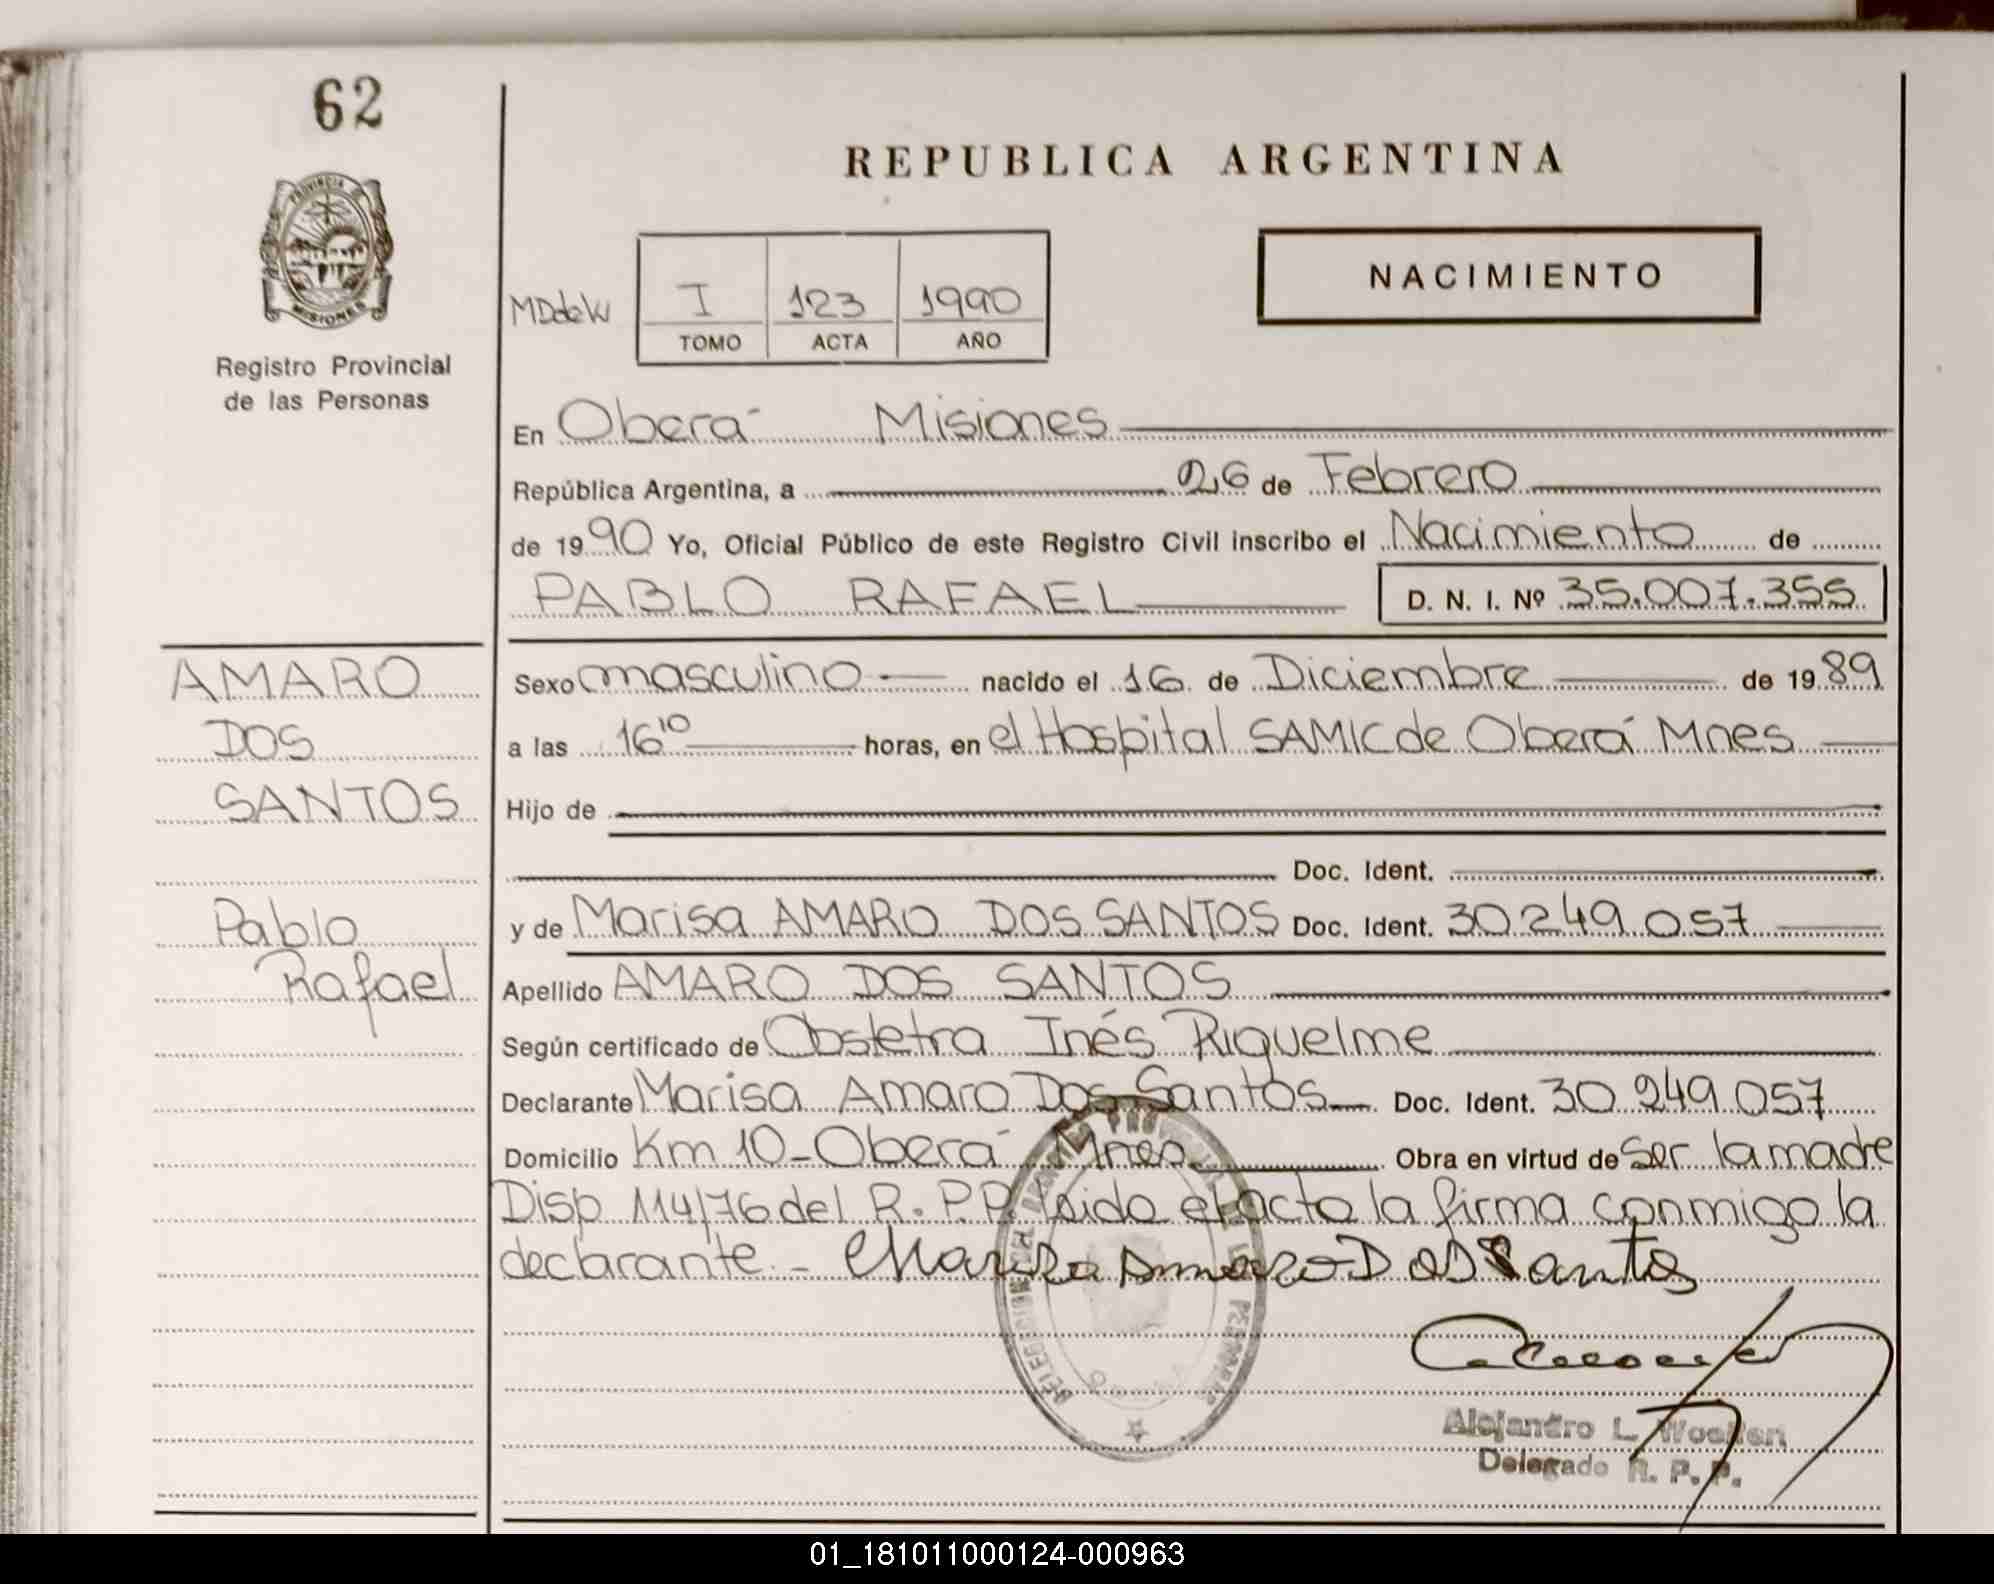 62
REPUBLICA ARGENTINA
PROVINCIA
MISIONES
Registro Provincial
de las Personas
NACIMIENTO
MDdeW
I 123 1990
TOMO ACTA AÑO
En Oberá Misiones
República Argentina, a 26 de Febrero
de 1990 Yo, Oficial Público de este Registro Civil inscribo el Nacimiento de
PABLO RAFAEL D. N. I. Nº 35.007.355
AMARO
DOS
SANTOS
Pablo
Rafael
Sexo masculino nacido el 16 de Diciembre de 1989
a las 16 10 horas, en el Hospital SAMIC de Oberá Mnes
Hijo de
Doc. Ident.
y de Marisa AMARO DOS SANTOS Doc. Ident. 30249.057
Apellido AMARO DOS SANTOS
Según certificado de Obstetra Inés Riquelme
Declarante Marisa Amaro Dos Santos Doc. Ident. 30.249.057
Domicilio Km 10-Oberá Mnes Obra en virtud de Ser la madre
Disp 114/76 del R.P.P. Leido el acto la firma conmigo la
declarante.- Marisa Amaro Dos Santos
Alejandro L.
Delegado R. P. P.
01_181011000124-000963